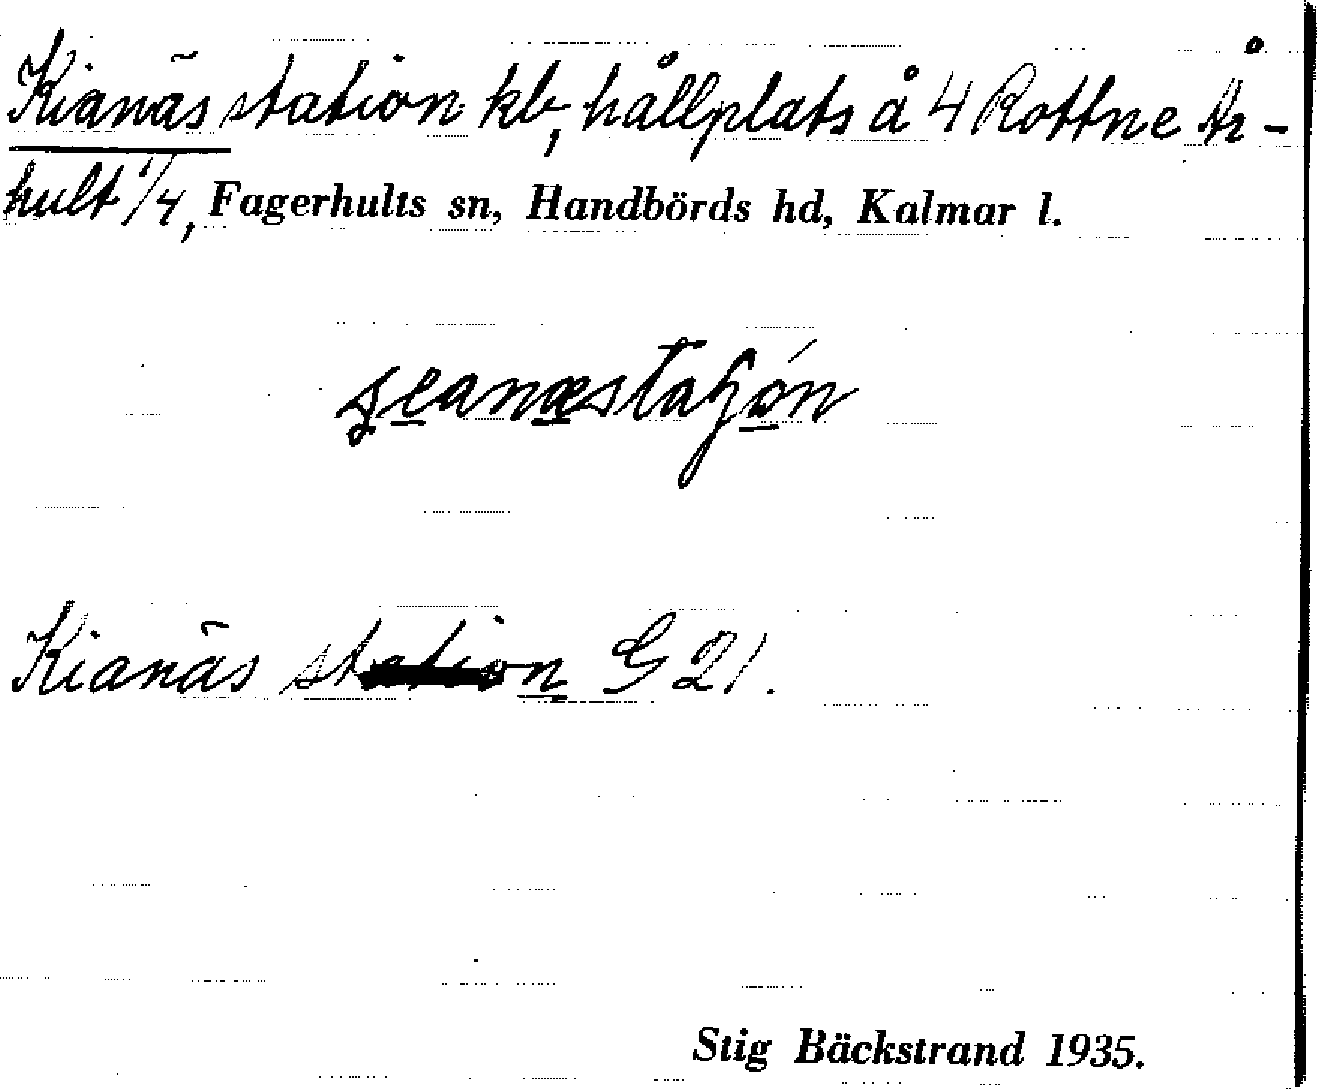 Kianäs station kb, hållplats å 4 Rottne År-
hult 1/4, Fagerhults sn, Handbörds hd, Kalmar l.
Kianäs station G 21.
Stig Bäckstrand 1935.